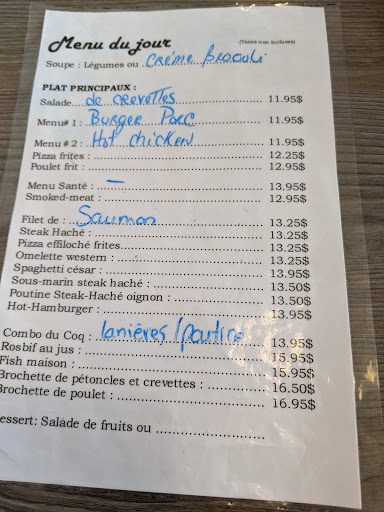 Menu du jour (Taxes non incluses)
Soupe : Légumes ou crème brocoli
PLAT PRINCIPAUX :
Salade de crevettes 11.95$
Menu# 1 : Burger Porc 11.95$
Menu # 2 : Hot chicken 11.95$
Pizza frites : 12.25$
Poulet frit : 12.95$
Menu Santé : – 13.95$
Smoked-meat : 12.95$
Filet de : Saumon 13.25$
Steak Haché : 13.25$
Pizza effiloché frites 13.25$
Omelette western : 13.25$
Spaghetti césar : 13.95$
Sous-marin steak haché : 13.50$
Poutine Steak-Haché oignon : 13.50$
Hot-Hamburger : 13.95$
Combo du Coq : lanières/poutine 13.95$
Rosbif au jus : 15.95$
Fish maison : 15.95$
Brochette de pétoncles et crevettes : 16.50$
Brochette de poulet : 16.95$
essert: Salade de fruits ou